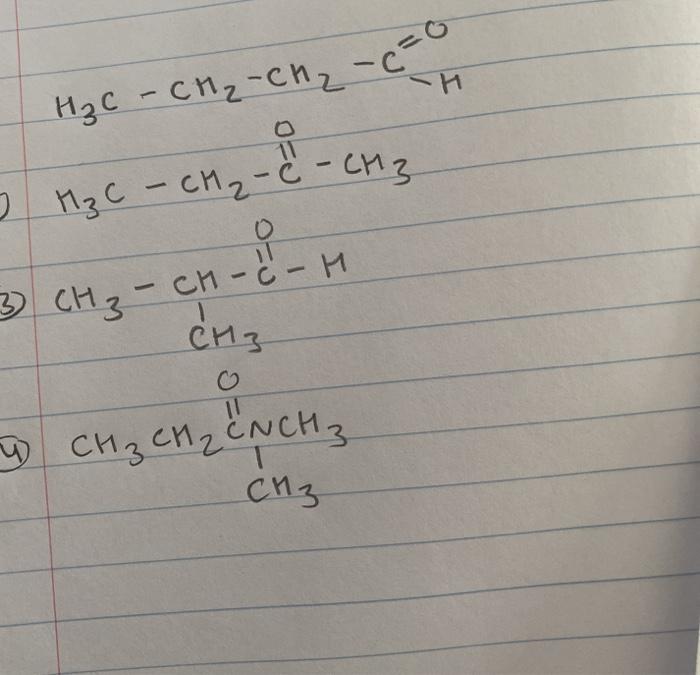 H3C - CH2 - CH2 - C = O
- H
O
||
) H3C - CH2 - C - CH3
O
||
3) CH3 - CH - C - H
|
CH3
O
||
4) CH3CH2CNCH3
|
CH3